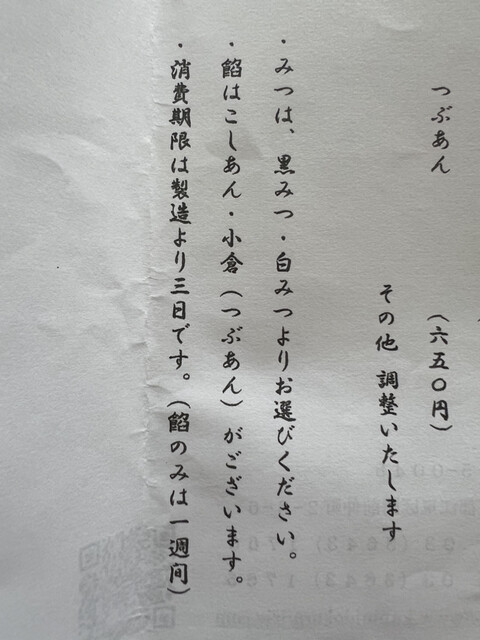 つぶあん
（六五〇円）
その他 調整いたします
・みつは、黒みつ・白みつよりお選びください。
・餡はこしあん・小倉（つぶあん）がございます。
・消費期限は製造より三日です。（餡のみは一週間）